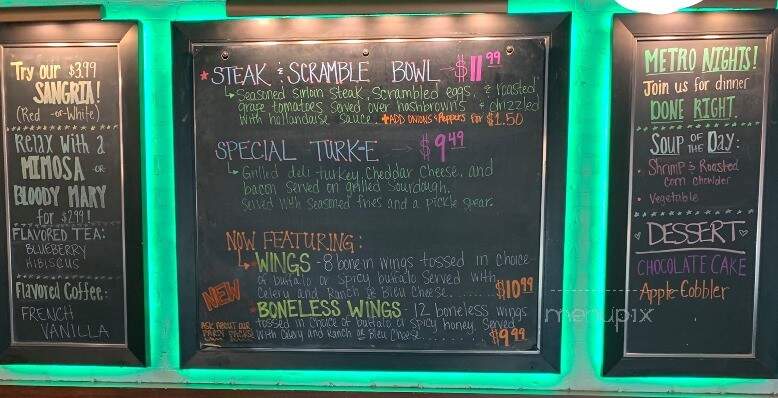 Try our $3.99
SANGRIA!
(Red -or- White)
Relax with a
MIMOSA -OR-
BLOODY MARY
for $2.99!
FLAVORED TEA:
BLUEBERRY
HIBISCUS
Flavored Coffee:
FRENCH
VANILLA
* STEAK & SCRAMBLE BOWL → $11.99
Seasoned sirloin steak, scrambled eggs, & roasted
grape tomatoes served over hashbrowns & drizzled
with hollandaise sauce. *ADD ONIONS & Peppers for $1.50
SPECIAL TURK-E → $9.49
Grilled deli turkey, cheddar cheese, and
bacon served on grilled sourdough.
Served with seasoned fries and a pickle spear.
NOW FEATURING:
WINGS - 8 bone in wings tossed in choice
of buffalo or spicy buffalo served with
NEW Celery and Ranch or Bleu Cheese........ $10.99
BONELESS WINGS - 12 boneless wings
tossed in choice of buffalo or spicy honey. Served
with Celery and Ranch or Bleu Cheese........ $9.99
ASK ABOUT OUR
PARTY PACKS!
METRO NIGHTS!
Join us for dinner
DONE RIGHT.
SOUP OF THE Day:
• Shrimp & Roasted
corn chowder
• Vegetable
DESSERT
CHOCOLATE CAKE
Apple Cobbler
menupix